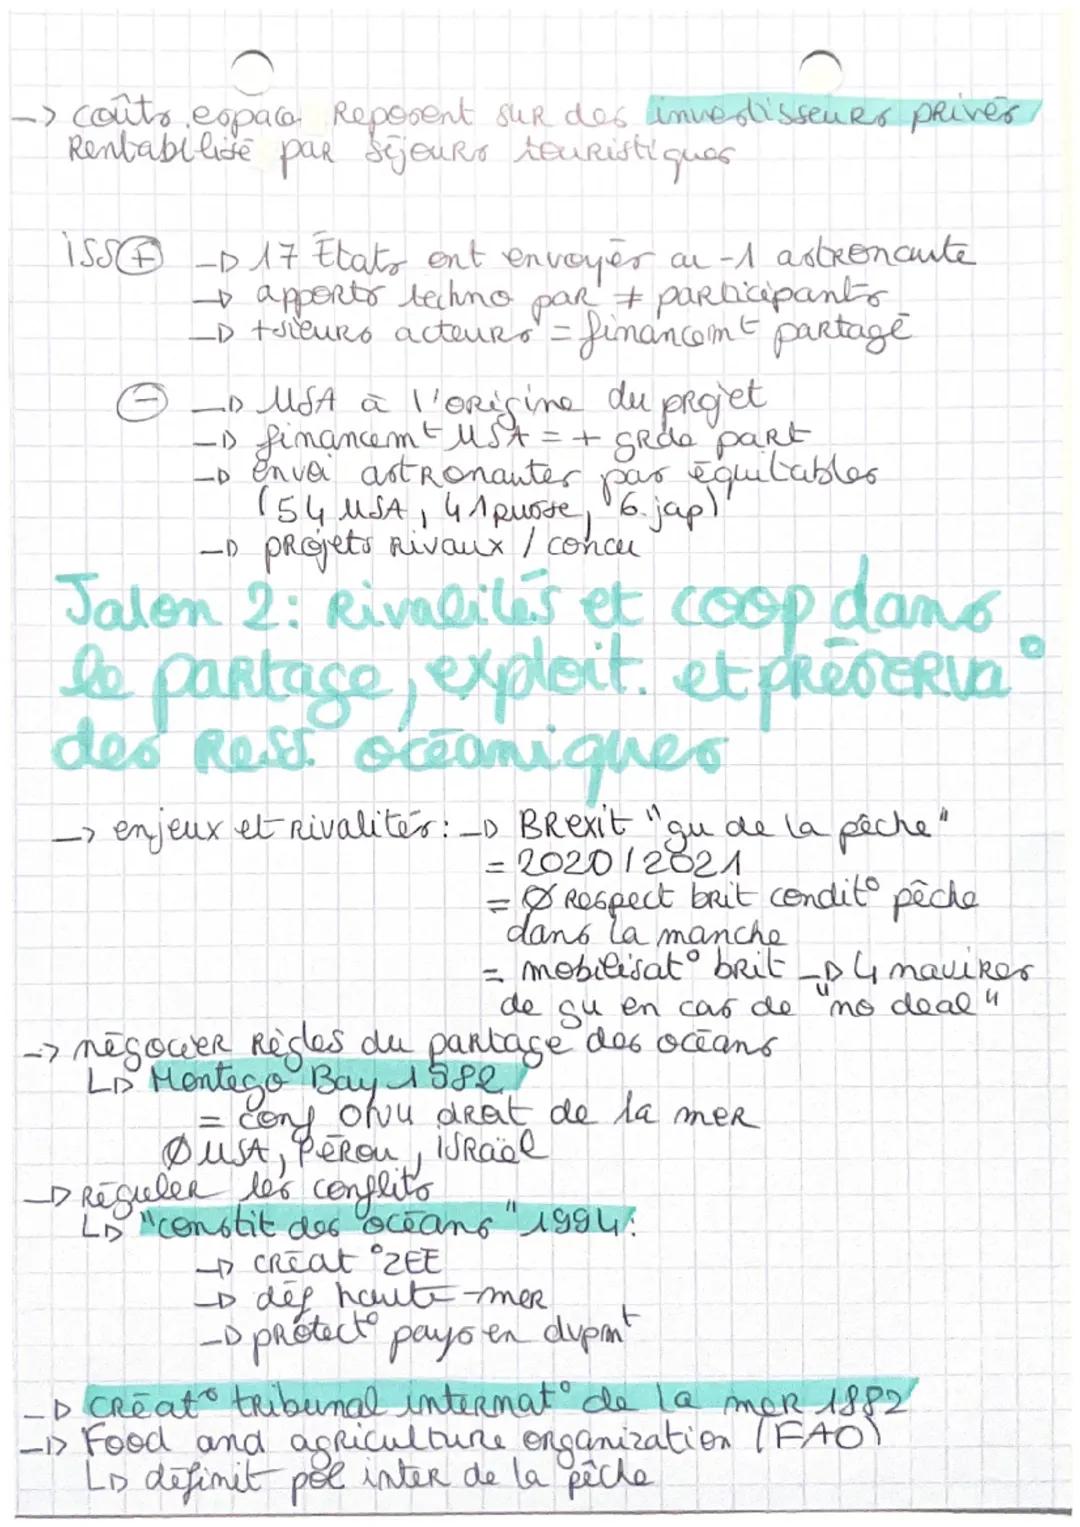 -> coûts espace Reposent sur des investisseurs privés
Rentabilisé par séjours touristiques
iss + → 17 États ont envoyés au -1 astronaute
→ apports techno par ≠ participants
→ +sieurs acteurs = financemt partagé
- → USA à l'origine du projet
→ financemt USA = + grde part
→ envoi astronautes pas équitables
(54 USA, 41 russe, 6 jap)
→ projets Rivaux / concu
Jalon 2: Rivalités et coop dans
le partage, exploit. et préserva°
des Ress. océaniques
-> enjeux et rivalités: → BRexit "gu de la pêche"
= 2020/2021
= Ø Respect brit condit° pêche
dans la manche
= mobilisat° brit → 4 navires
de gu en cas de "no deal"
-> négocier Règles du partage des océans
↳ Montego Bay 1982
= conf ONU droit de la mer
Ø USA, Pérou, ISRaël
→ Réguler les conflits
↳ "constit des océans" 1994:
→ créat° ZEE
→ déf haute-mer
→ protect° pays en dvpmt
→ créat° tribunal internat° de la mer 1982
→ Food and agriculture organization (FAO)
↳ définit pol inter de la pêche